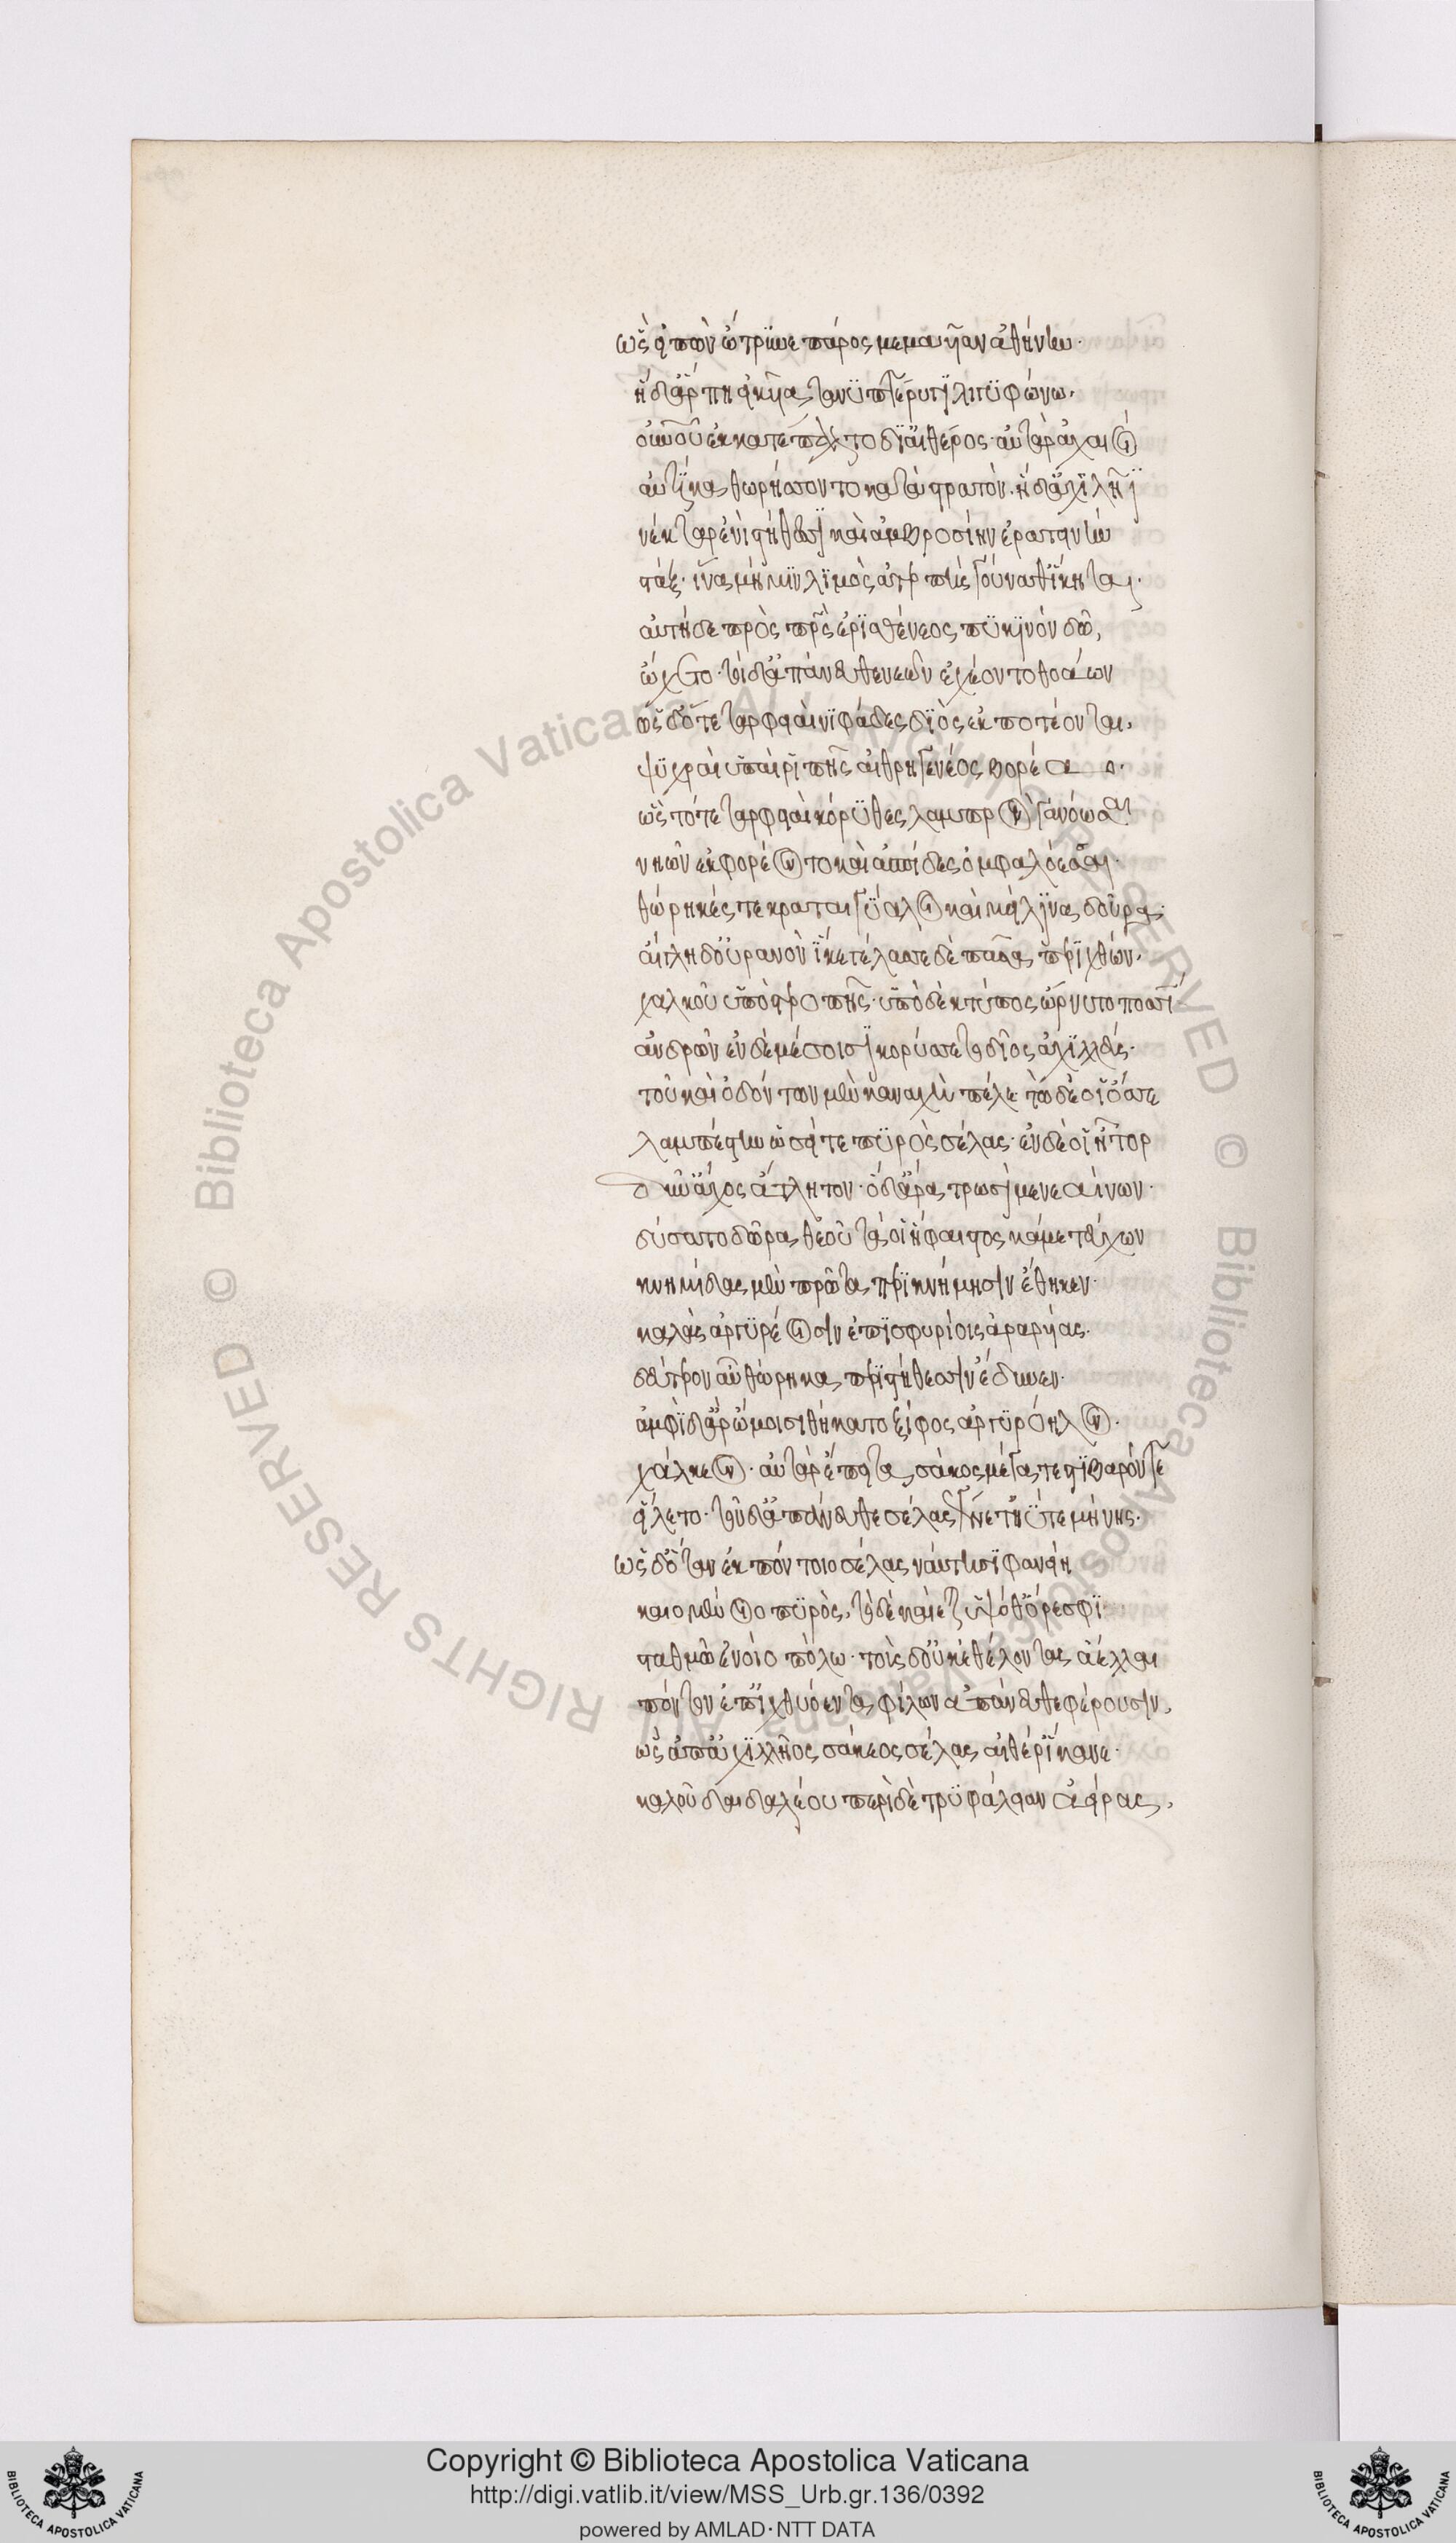 ὣς εἰπὼν ὤτρυνε πάρος μεμαυῖαν ἀθήνην·
ἡ δ' ἅρπῃ εἰκυῖα τανυπτέρυγι λιγυφώνω·
οὐρανοῦ ἐκκατέπαλτο δι' αἰθέρος· αὐτὰρ ἀχαιοὶ
αὐτίκα θωρήσσοντο κατὰ στρατόν· ἡ δ' ἀχιλῆϊ
νέκταρ ἐνὶ στήθεσσι καὶ ἀμβροσίην ἐρατεινὴν
στάξ· ἵνα μή μιν λιμὸς ἀτερπὴς γούναθ' ἵκηται·
αὐτὴ δὲ πρὸς πατρὸς ἐρισθενέος πυκινὸν δῶ,
ὤχετο· τοὶ δ' ἀπάνευθε νεῶν ἐχέοντο θοάων
ὡς δ' ὅτε ταρφειαὶ νιφάδες διὸς ἐκποτέονται,
ψυχραὶ ὑπαὶ ῥιπῆς αἰθρηγενέος βορέαο·
ὣς τότε ταρφειαὶ κόρυθες λαμπρὸν γανόωσαι
νηῶν ἐκφορέοντο καὶ ἀσπίδες ὀμφαλόεσσαι·
θώρηκές τε κραταιγύαλοι καὶ μείλινα δοῦρα·
αἴγλη δ' οὐρανὸν ἷκε γέλασσε δὲ πᾶσα περὶ χθών·
χαλκοῦ ὑπὸ στεροπῆς· ὑπὸ δὲ κτύπος ὤρνυτο ποσσὶ
ἀνδρῶν ἐν δὲ μέσοισι κορύσσετο δῖος ἀχιλλεύς·
τοῦ καὶ ὀδόντων μὲν καναχὴ πέλε τὼ δέ οἱ ὄσσε
λαμπέσθην ὡσεί τε πυρὸς σέλας· ἐν δέ οἱ ἦτορ
δῦν' ἄχος ἄτλητον· ὁ δ' ἄρα τρωσὶ μενεαίνων·
δύσατο δῶρα θεοῦ τά οἱ ἥφαιστος κάμε τεύχων
κνημῖδας μὲν πρῶτα περὶ κνήμησιν ἔθηκεν·
καλὰς ἀργυρέοισιν ἐπισφυρίοις ἀραρυίας·
δεύτερον αὖ θώρηκα περὶ στήθεσιν ἔδυνεν·
ἀμφὶ δ' ἄρ' ὤμοισι θήκατο ξίφος ἀργυρόηλον·
χάλκεον· αὐτὰρ ἔπειτα σάκος μέγα τε στιβαρόν τε
εἵλετο· τοῦ δ' ἀπάνευθε σέλας γένετ' ἠΰτε μήνης·
ὡς δ' ὅταν ἐκ πόντοιο σέλας ναύτησι φανείη
καιομένοιο πυρός, τὸ δὲ καίεται ὑψόθ' ὄρεσφι
σταθμῶ ἐν οἰοπόλω· τοὺς δ' οὐκ ἐθέλοντας ἄελλαι
πόντον ἐπ' ἰχθυόεντα φίλων ἀπάνευθε φέρουσιν,
ὣς ἀπ' ἀχιλλῆος σάκεος σέλας αἰθέρ' ἵκανε·
καλοῦ δαιδαλέου περὶ δὲ τρυφάλειαν ἀείρας,
Copyright © Biblioteca Apostolica Vaticana
http://digi.vatlib.it/view/MSS_Urb.gr.136/0392
powered by AMLAD·NTT DATA